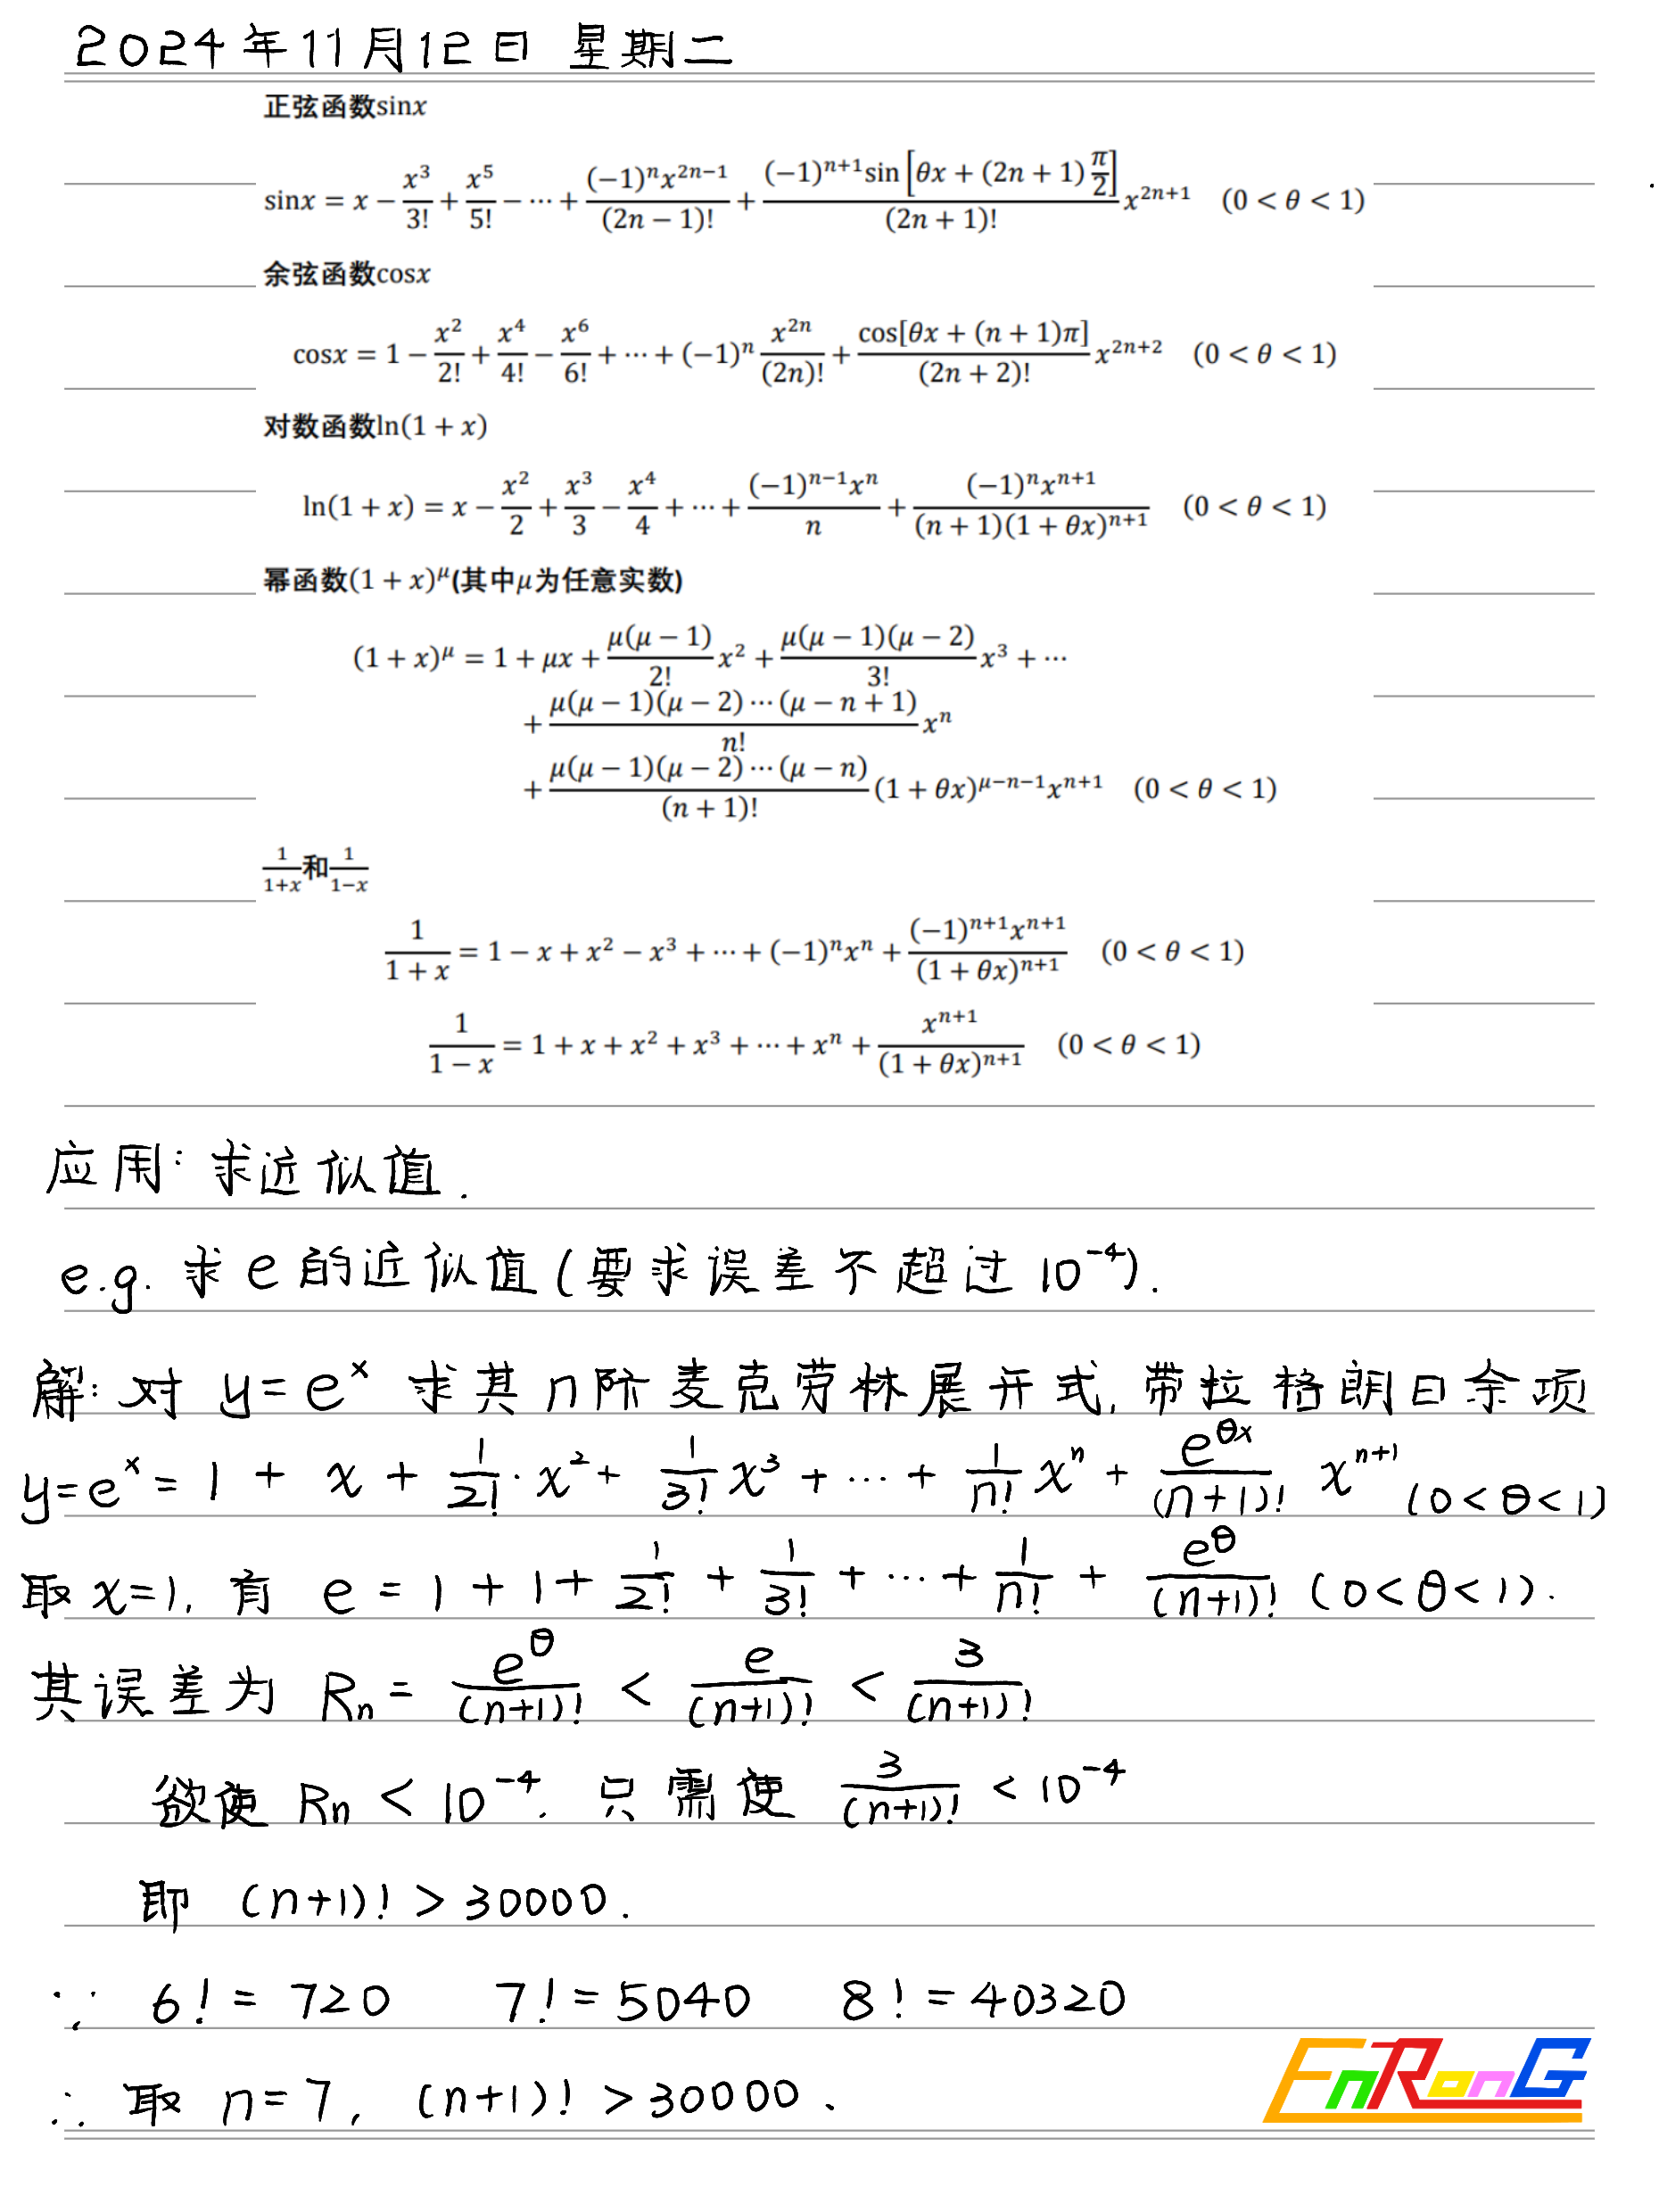 2024年11月12日 星期二
正弦函数sinx
sinx = x − x³/3! + x⁵/5! − ⋯ + (−1)ⁿx²ⁿ⁻¹/(2n − 1)! + (−1)ⁿ⁺¹sin[θx + (2n + 1)π/2]/(2n + 1)! x²ⁿ⁺¹ (0 < θ < 1)
余弦函数cosx
cosx = 1 − x²/2! + x⁴/4! − x⁶/6! + ⋯ + (−1)ⁿ x²ⁿ/(2n)! + cos[θx + (n + 1)π]/(2n + 2)! x²ⁿ⁺² (0 < θ < 1)
对数函数ln(1 + x)
ln(1 + x) = x − x²/2 + x³/3 − x⁴/4 + ⋯ + (−1)ⁿ⁻¹xⁿ/n + (−1)ⁿxⁿ⁺¹/(n + 1)(1 + θx)ⁿ⁺¹ (0 < θ < 1)
幂函数(1 + x)^μ(其中μ为任意实数)
(1 + x)^μ = 1 + μx + μ(μ − 1)/2! x² + μ(μ − 1)(μ − 2)/3! x³ + ⋯
+ μ(μ − 1)(μ − 2)⋯(μ − n + 1)/n! xⁿ
+ μ(μ − 1)(μ − 2)⋯(μ − n)/(n + 1)! (1 + θx)^(μ−n−1) xⁿ⁺¹ (0 < θ < 1)
1/(1+x)和1/(1−x)
1/(1 + x) = 1 − x + x² − x³ + ⋯ + (−1)ⁿxⁿ + (−1)ⁿ⁺¹xⁿ⁺¹/(1 + θx)ⁿ⁺¹ (0 < θ < 1)
1/(1 − x) = 1 + x + x² + x³ + ⋯ + xⁿ + xⁿ⁺¹/(1 + θx)ⁿ⁺¹ (0 < θ < 1)
应用: 求近似值.
e.g. 求e的近似值(要求误差不超过10⁻⁴).
解: 对 y=eˣ 求其n阶麦克劳林展开式, 带拉格朗日余项
y=eˣ = 1 + x + 1/2!·x² + 1/3! x³ + ⋯ + 1/n! xⁿ + e^(θx)/(n+1)! xⁿ⁺¹ (0<θ<1)
取 x=1, 有 e = 1 + 1 + 1/2! + 1/3! + ⋯ + 1/n! + e^θ/(n+1)! (0<θ<1).
其误差为 Rn = e^θ/(n+1)! < e/(n+1)! < 3/(n+1)!
欲使 Rn < 10⁻⁴. 只需使 3/(n+1)! < 10⁻⁴
即 (n+1)! > 30000.
∵ 6! = 720 7! = 5040 8! = 40320
∴ 取 n=7, (n+1)! > 30000.
EnRonG